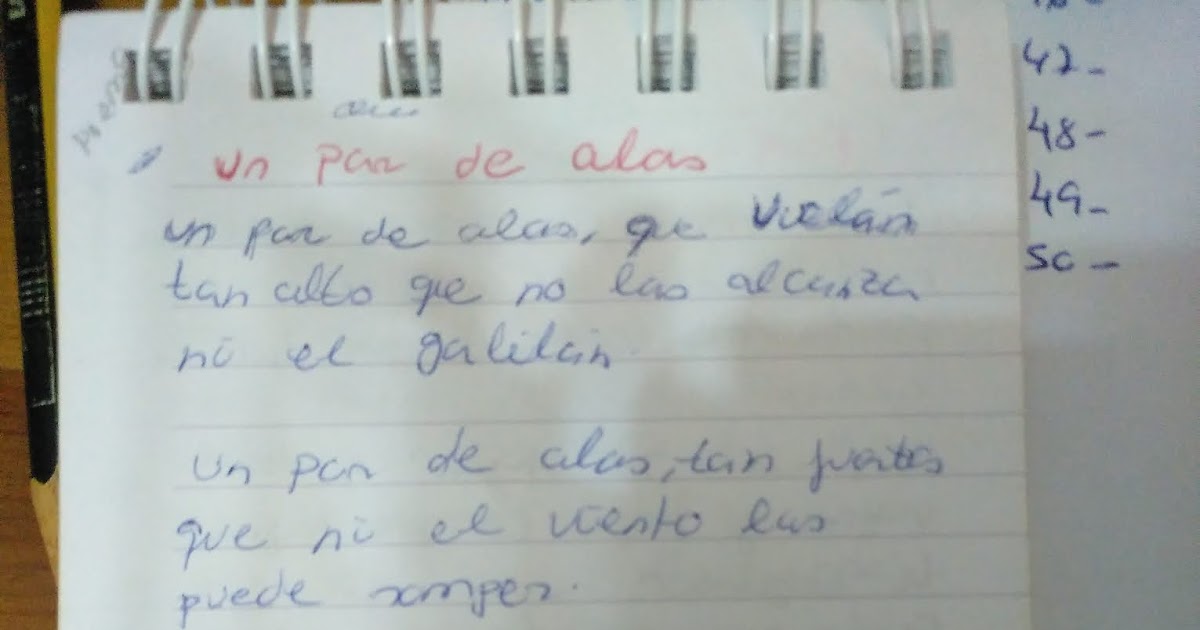 poema
un par de alas
un par de alas, que vuelán
tan alto que no las alcanza
ni el galilán.
un par de alas, tan fuertes
que ni el viento las
puede romper.
47-
48-
49-
50-